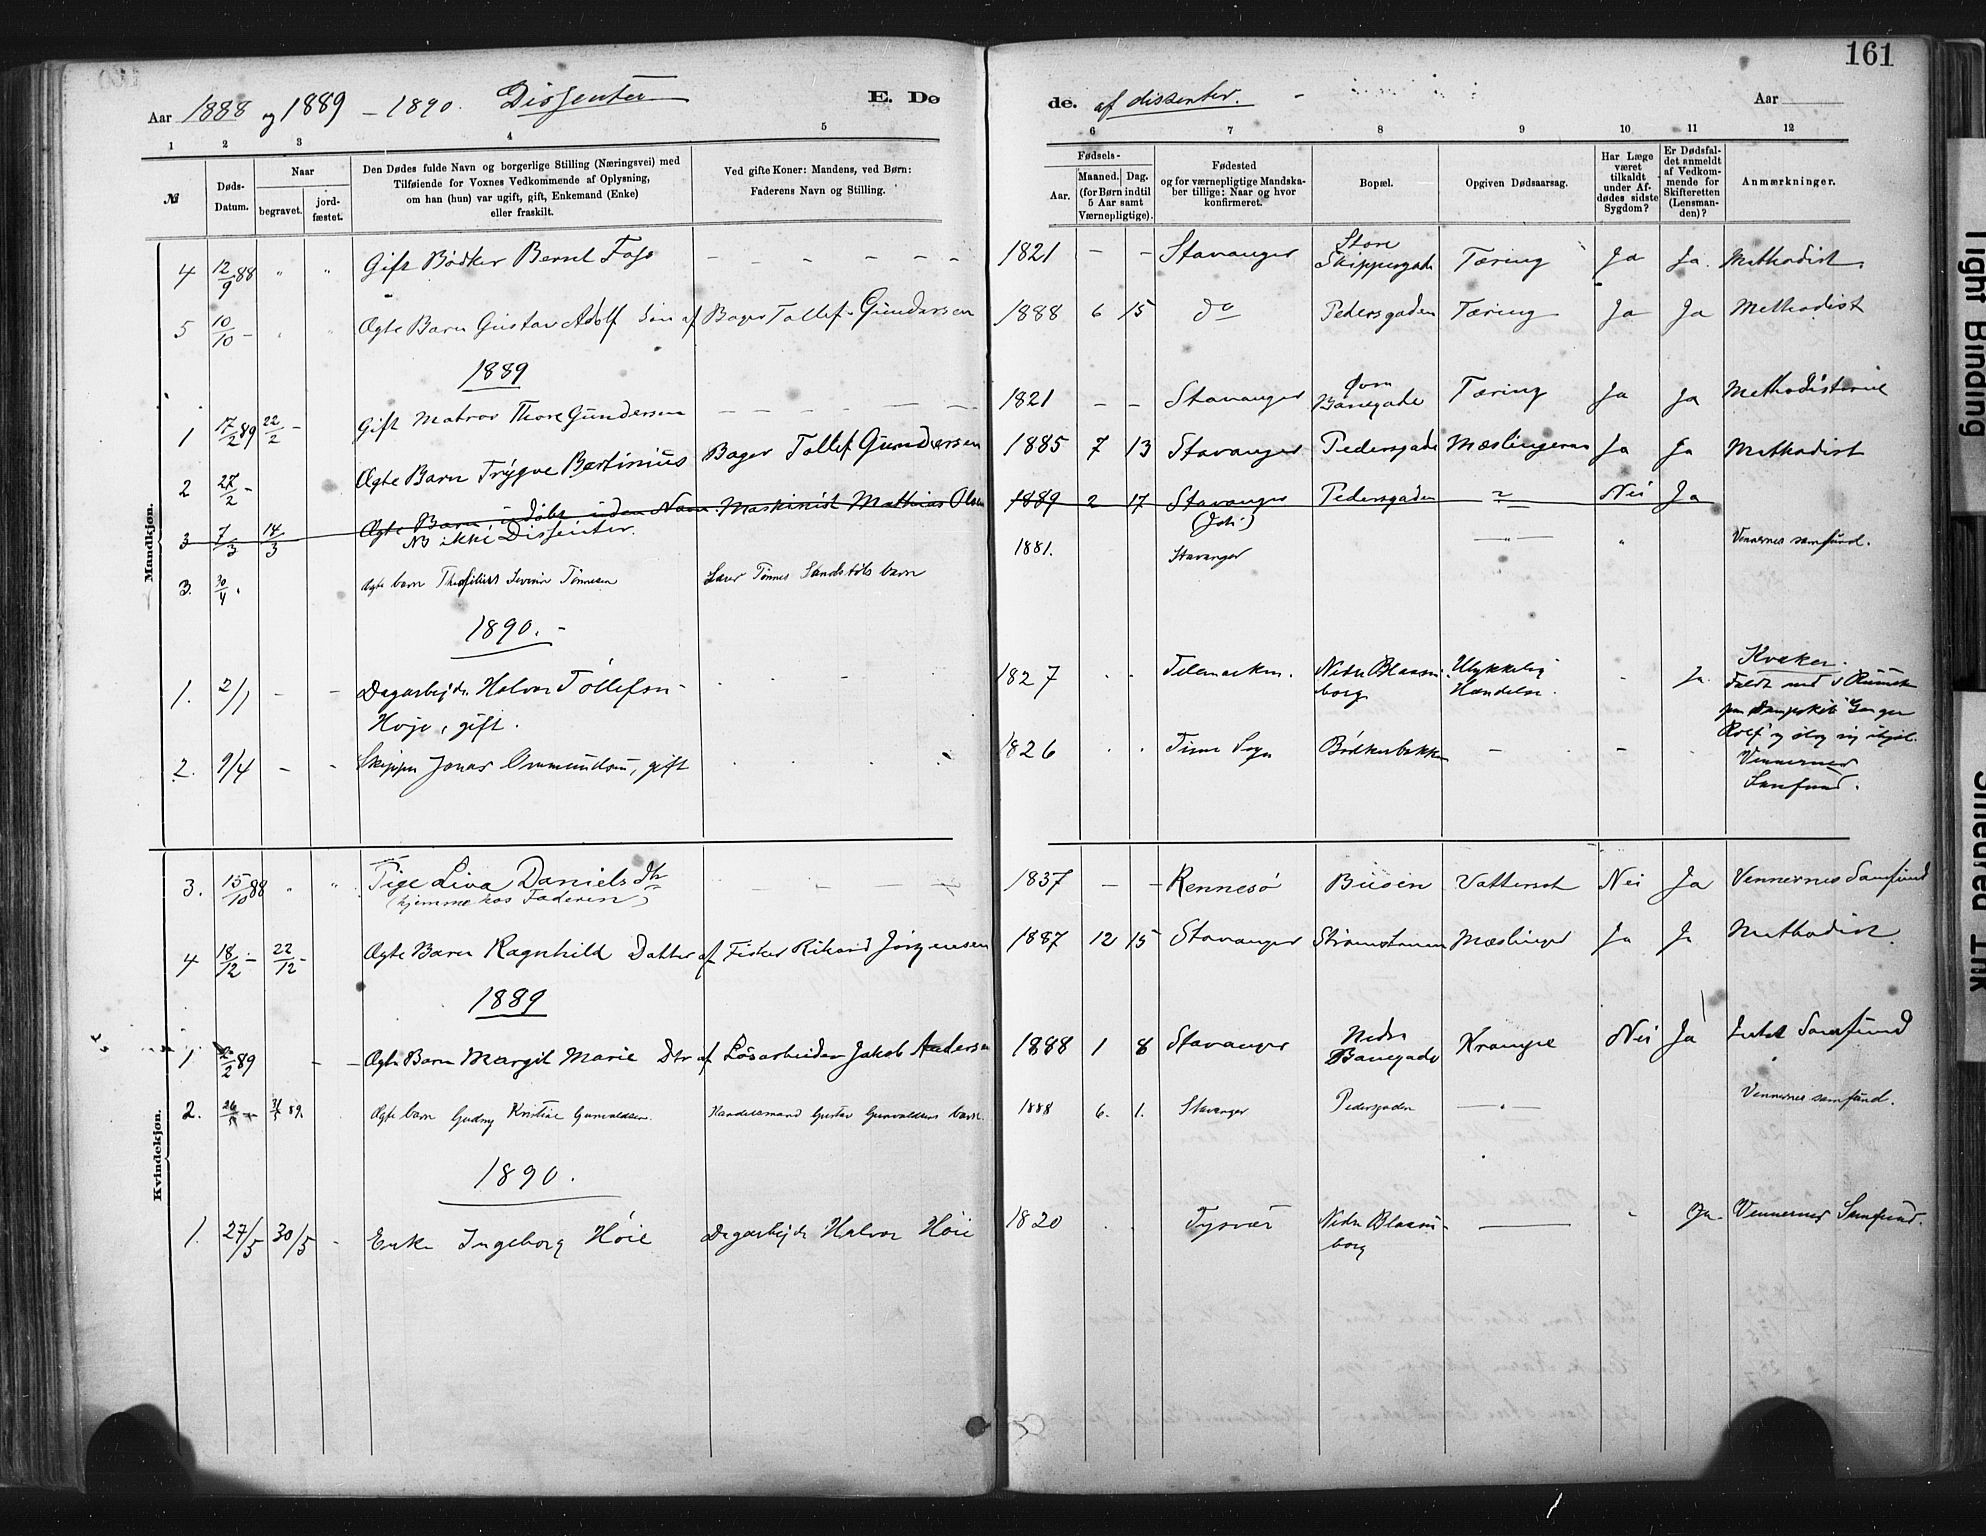 161
Aar 1888 og 1889 – 1890. Dissenter E. Dø
de. af dissenter. Aar
1 2 3 4 5 6 7 8 9 10 11 12
№
Døds-Datum.
Naar
begravet.
jord-fæstet.
Den Dødes fulde Navn og borgerlige Stilling (Næringsvei) med
Tilføiende for Voxnes Vedkommende af Oplysning,
om han (hun) var ugift, gift, Enkemand (Enke)
eller fraskilt.
Ved gifte Koner: Mandens, ved Børn:
Faderens Navn og Stilling.
Fødsels-
Aar.
Maaned. Dag.
(for Børn indtil
5 Aar samt
Værnepligtige).
Fødested
og for værnepligtige Mandska-
ber tillige: Naar og hvor
konfirmeret.
Bopæl.
Opgiven Dødsaarsag.
Har Læge
været
tilkaldt
under Af-
dødes sidste
Sygdom?
Er Dødsfal-
det anmeldt
af Vedkom-
mende for
Skifteretten
(Lensman-
den)?
Anmærkninger.
Mandkjøn.
4 12/9 88 " " Gift Bødker Bernt Foss – – – – – – 1821 – – Stavanger Store Skippergade Tæring Ja Ja. Methodist
5 10/10 – Ægte Barn Gustav Adolf Søn af Bager Tollef Gundersen 1888 6 15 do Pedersgaden Tæring Ja Ja Methodist
1889
1 17/2 89 22/2 – Gift Matros Thore Gundersen – – – – – – 1821 – – Stavanger Øvre Banegade Tæring Ja Ja Methodisterne
2 27/2 – Ægte Barn Trygve Bertinius Bager Tollef Gundersen 1885 7 13 Stavanger Pedersgade Mæslingerne Ja Ja Methodist
3 7/3 14/3 Ægte Barn, udøbt uden Navn. Maskinist Mathias Olsen 1889 2 17 Stavanger Pedersgaden Nei Ja
NB ikke Dissenter.
3. 30/4 Ægte barn Theofilius Severin Tønnesen Lærer Tønnes Sandstøls barn 1881. Stavanger – " – " Vennernes samfund.
1890. –
1. 2/1 – – Dagarbejdr. Halvor Tollefsen 1827 Telemarken. Nedre Blaasenborg Ulykkelig Hændelse. – Ja Kvæker.
Høje, gift. Faldt ned i Rummet paa Dampskib Ganger Rolf og slog sig ihjel.
2. 9/4 – – Skipper Jonas Ommundsen, gift 1826 Time Sogn Bødkerbakken – – Vennernes Samfund.
Kvindekjøn.
3. 15/10 88 " " Pige Liva Danielsdtr – – – – – 1837 – – Rennesø Buøen Vattersot Nei Ja Vennernes Samfund
(hjemme hos Faderen)
4 18/12 – 22/12 – Ægte Barn Ragnhild Datter af Fisker Rikard Jørgensen 1887 12 15 Stavanger Strømsteinen Mæslinger Ja Ja Methodist.
1889
1 2/2 89 – – Ægte Barn Margit Marie Dtr af Løsarbeider Jakob Andersen 1888 1 8 Stavanger Nedre Banegade Krampe Nei Ja Intet Samfund
2. 26/5 – 31/5 89. Ægte barn Gudny Kristine Gunvaldsen. Handelsmand Gustav Gunvaldsens barn. 1888 6. 1. Stavanger Pedersgaden – " – Vennernes samfund.
1890.
1. 27/5 30/5 – Enke Ingeborg Høie Dagarbejdr Halvor Høie 1820 Tysvær Nedre Blaasenborg – " Ja. Vennernes Samfund.
Tight Binding